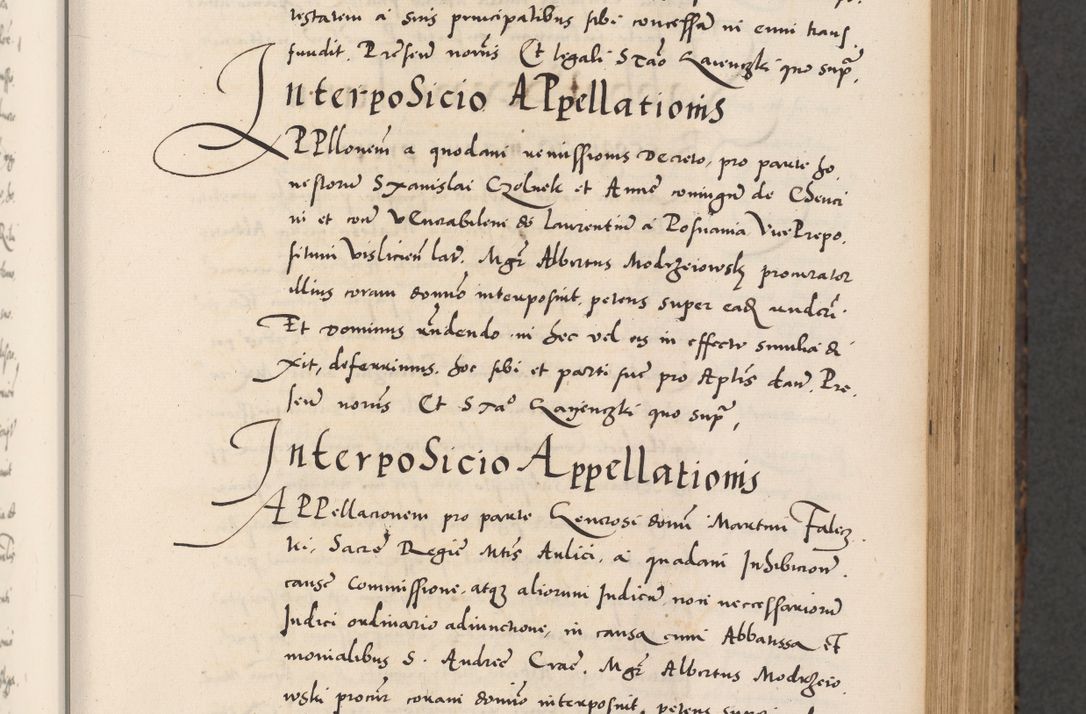 testatem a suis principalibus sibi concessam in eum trans,
fundit. Presen norus Et legali Stao Gaienczki quo supra,
Interposicio APpellationis
APPllonem a quodam remissionis Decreto, pro parte ho,
nestorum Stanislai Czolnek et Anne coniugum de Chenci
ni et coram VEnerabilem do Laurentium a Posnania VicePrepo,
situm vislicien lat. Mgr Albertus Modrzeiowsky procurator
illius coram domino interposuit, petens super ead
Et Dominus rndendo in hec vel eis in effectu similia di
xit, deferimus, hoc sibi et parti sue pro Aplis dam. Pre,
sen norus Et Stao Gaienczki quo supra,
Interposicio Appellationis
APPellacionem pro parte Generosi domini Martini Falicz
ki, Sacre Regie Mtis Aulici, a quadam Inhibicione
cause Commissione, atque aliorum Iudicum non neccessariorum
Iudici ordinario adiunctione, in causa cum Abbatissa et
monialibus S. Andree Crac. Mgr Albertus Modrzeio,
wski procur coram domino interposuit, petens super